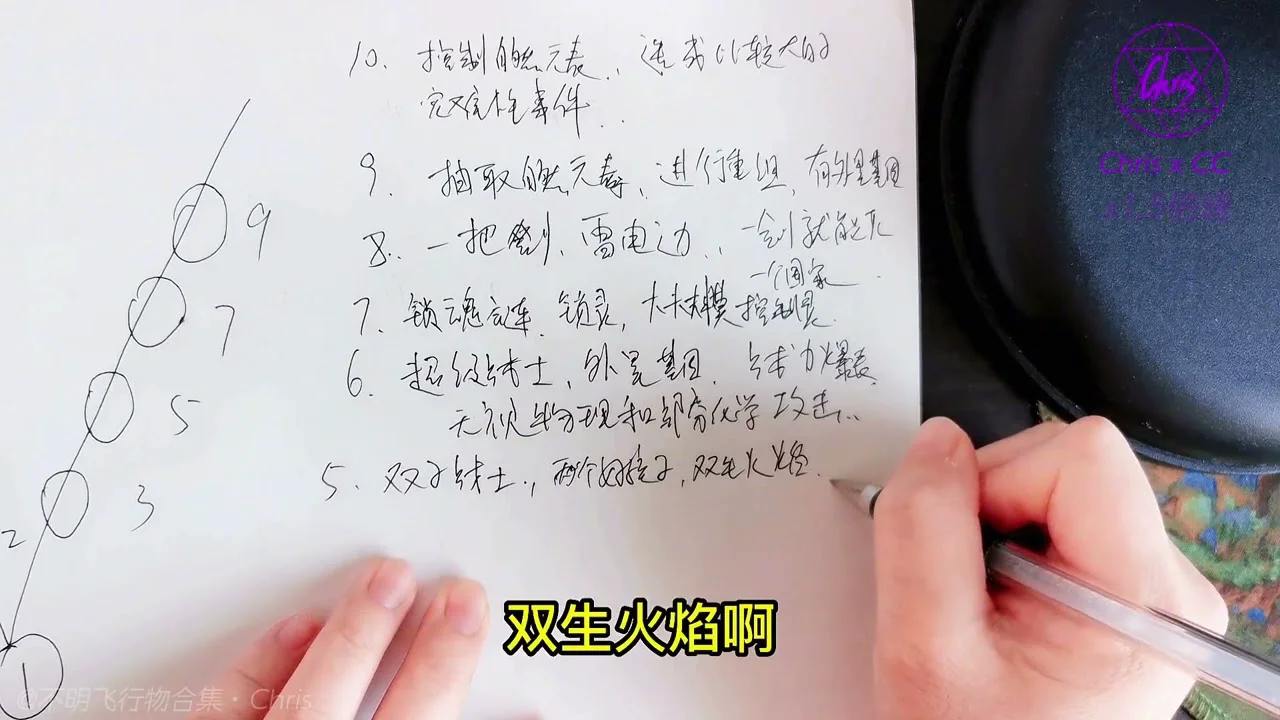 10. 控制自然元素.. 造成比较大的
灾难性事件...
9. 抽取自然元素, 进行重组, 有外星基因
8.. 一把剑, 雷电边.. 一剑就能灭
一个国家.
7. 锁魂链. 锁灵, 大规模控制灵.
6. 超级战士, 外星基因. 战术力爆表.
无视生物物理和部分化学攻击...
5. 双子战士.., 两个女孩子, 双生火焰.
9
7
5
3
2
1
双生火焰啊
Chris
Chris x CC
©不明飞行物合集 · Chris